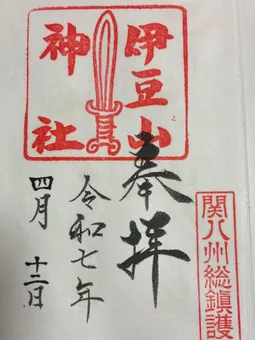 伊豆山
神社
奉拝
関八州総鎮護
令和七年
四月十二日